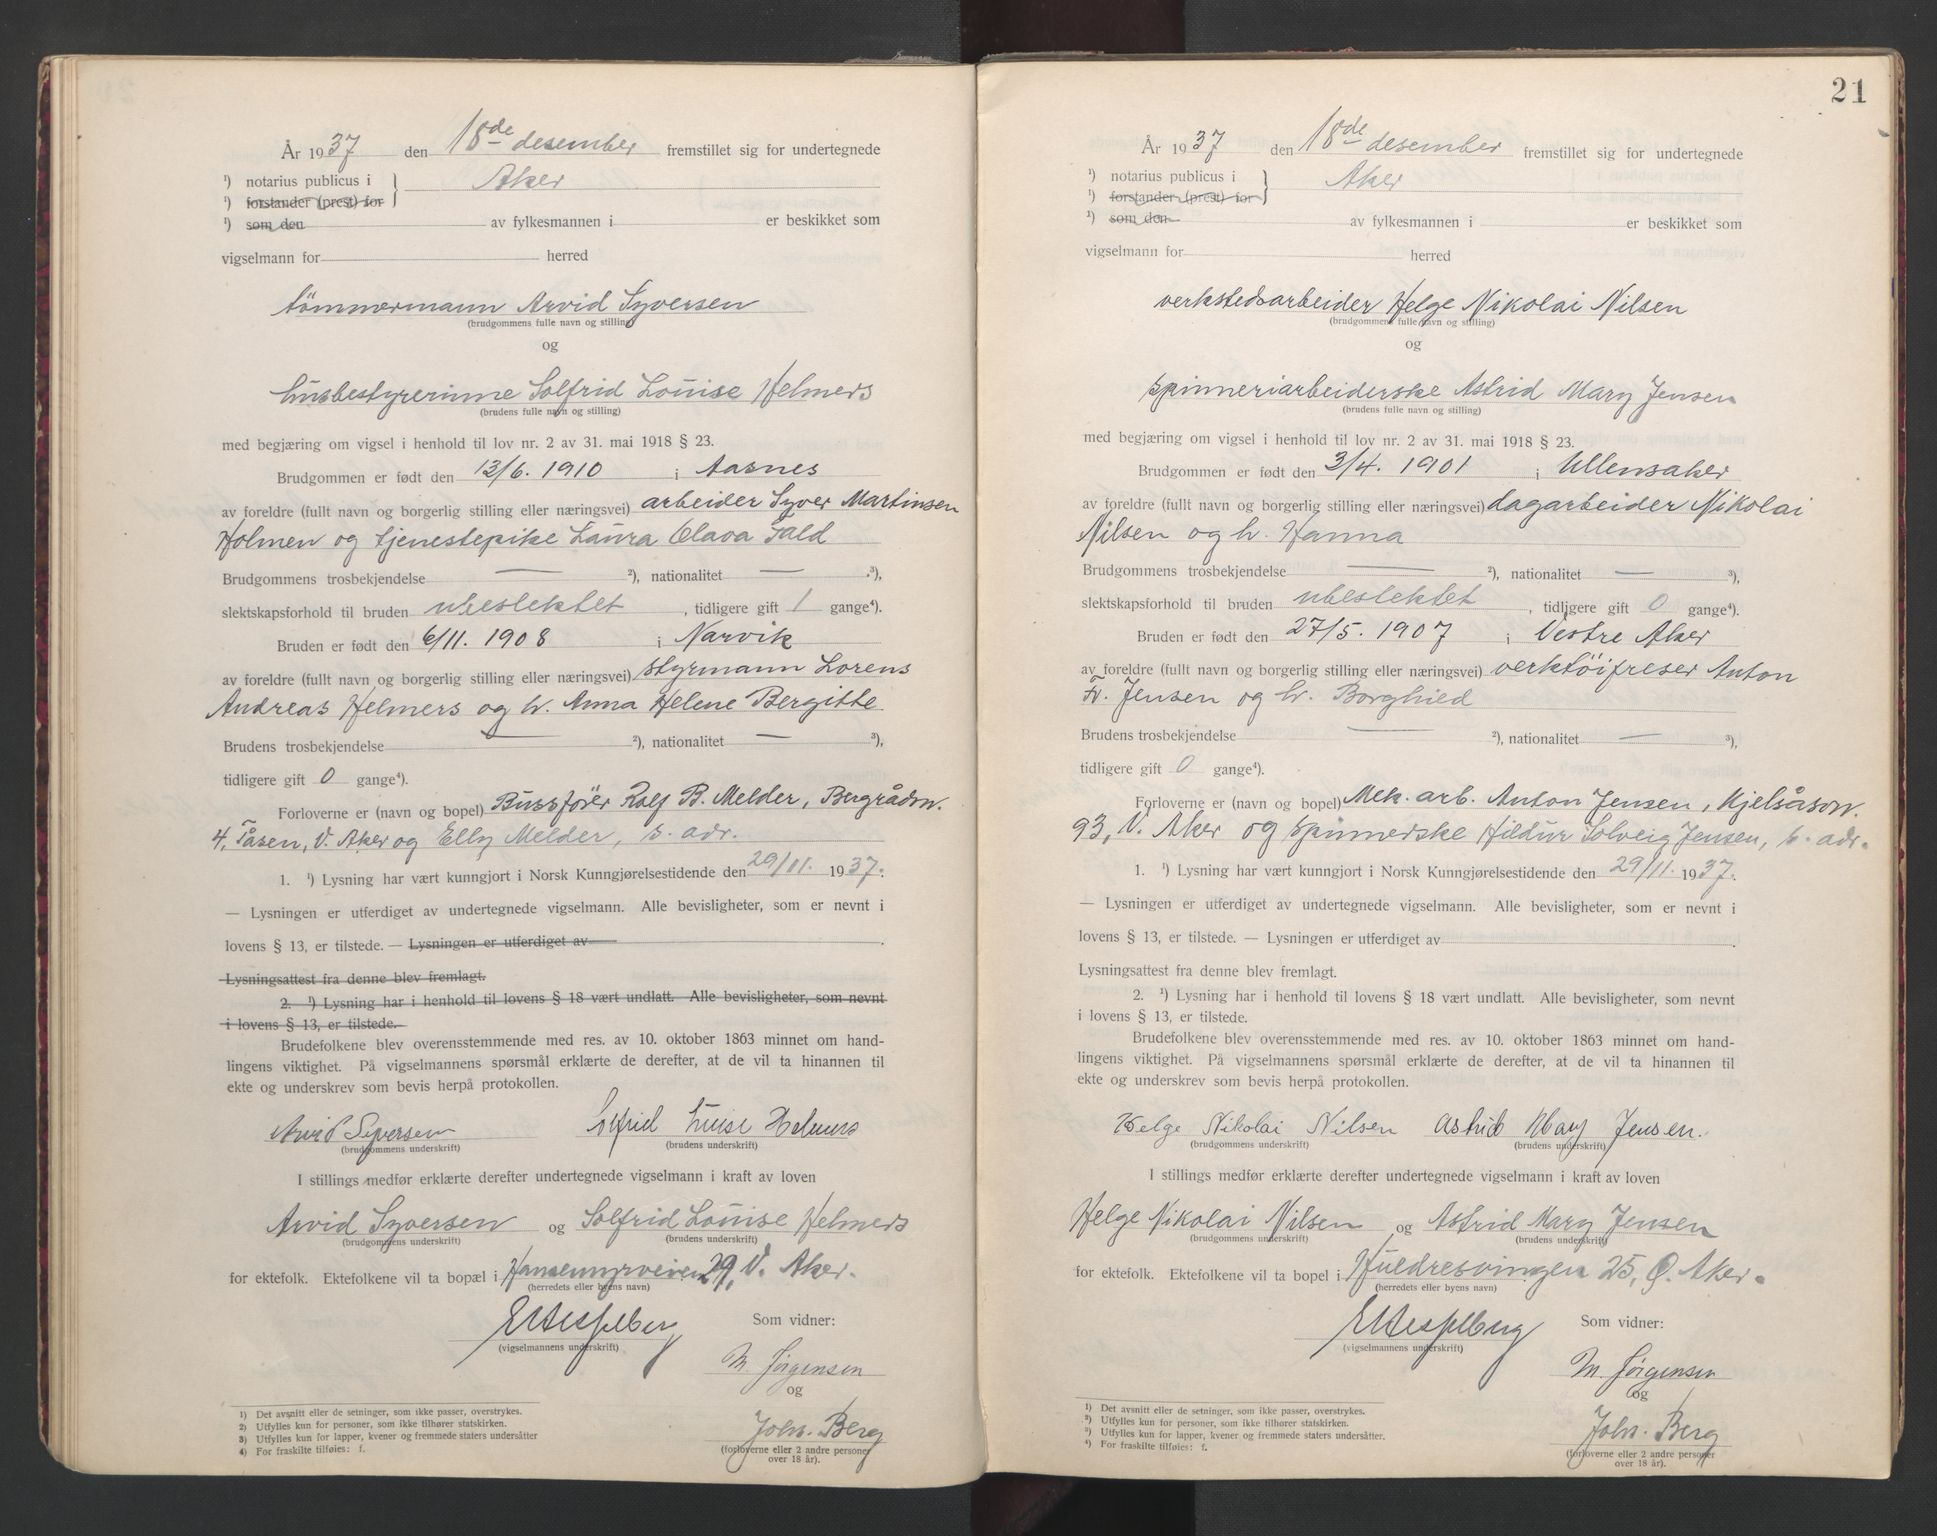 År 1937 den 18de desember fremstillet sig for undertegnede
¹) notarius publicus i } Aker
¹) forstander (prest) for
¹) som den av fylkesmannen i er beskikket som
vigselmann for herred
tömmermann Arvid Syversen
(brudgommens fulle navn og stilling)
og
husbestyrerinne Solfrid Louise Helmers
(brudens fulle navn og stilling)
med begjæring om vigsel i henhold til lov nr. 2 av 31. mai 1918 § 23.
Brudgommen er født den 13/6. 1910 i Aasnes
av foreldre (fullt navn og borgerlig stilling eller næringsvei) arbeider Syver Martinsen
Holmen og tjenestepike Laura Olava Sald
Brudgommens trosbekjendelse — ²), nationalitet — ³),
slektskapsforhold til bruden ubeslektet, tidligere gift 1 gange⁴).
Bruden er født den 6/11. 1908 i Narvik
av foreldre (fullt navn og borgerlig stilling eller næringsvei) styrmann Lorens
Andreas Helmers og h. Anna Helene Bergitte
Brudens trosbekjendelse — ²), nationalitet — ³),
tidligere gift 0 gange⁴).
Forloverne er (navn og bopel) Bussfører Rolf B. Melder, Bergrådsv.
4, Tåsen, V. Aker og Elly Melder, s. adr.
1. ¹) Lysning har vært kunngjort i Norsk Kunngjørelsestidende den 29/11. 1937.
— Lysningen er utferdiget av undertegnede vigselmann. Alle bevisligheter, som er nevnt i
lovens § 13, er tilstede. — Lysningen er utferdiget av
Lysningsattest fra denne blev fremlagt.
2. ¹) Lysning har i henhold til lovens § 18 vært undlatt. Alle bevisligheter, som nevnt
i lovens § 13, er tilstede.
Brudefolkene blev overensstemmende med res. av 10. oktober 1863 minnet om hand-
lingens viktighet. På vigselmannens spørsmål erklærte de derefter, at de vil ta hinannen til
ekte og underskrev som bevis herpå protokollen.
Arvid Syversen Solfrid Luise Helmers
(brudgommens underskrift) (brudens underskrift)
I stillings medfør erklærte derefter undertegnede vigselmann i kraft av loven
Arvid Syversen og Solfrid Louise Helmers
(brudgommens underskrift) (brudens underskrift)
for ektefolk. Ektefolkene vil ta bopæl i Hansemyrveien 29, V. Aker.
(herredets eller byens navn)
Som vidner:
(vigselmannens underskrift)
M. Jørgensen
og
Johs. Berg
(forloverne eller 2 andre personer
over 18 år).
1) Det avsnitt eller de setninger, som ikke passer, overstrykes.
2) Utfylles kun for personer, som ikke tilhører statskirken.
3) Utfylles kun for lapper, kvener og fremmede staters undersåtter
4) For fraskilte tilføies: f.
21
År 1937 den 18de desember fremstillet sig for undertegnede
¹) notarius publicus i } Aker
¹) forstander (prest) for
¹) som den av fylkesmannen i er beskikket som
vigselmann for herred
verkstedsarbeider Helge Nikolai Nilsen
(brudgommens fulle navn og stilling)
og
spinneriarbeiderske Astrid Mary Jensen
(brudens fulle navn og stilling)
med begjæring om vigsel i henhold til lov nr. 2 av 31. mai 1918 § 23.
Brudgommen er født den 3/4. 1901 i Ullensaker
av foreldre (fullt navn og borgerlig stilling eller næringsvei) dagarbeider Nikolai
Nilsen og h. Hanna
Brudgommens trosbekjendelse — ²), nationalitet — ³),
slektskapsforhold til bruden ubeslektet, tidligere gift 0 gange⁴).
Bruden er født den 27/5. 1907 i Vestre Aker
av foreldre (fullt navn og borgerlig stilling eller næringsvei) verktöifreser Anton
Fr. Jensen og h. Borghild
Brudens trosbekjendelse — ²), nationalitet — ³),
tidligere gift 0 gange⁴).
Forloverne er (navn og bopel) Mek. arb. Anton Jensen, Kjelsåsvn.
93, V. Aker og spinnerske Hildur Solveig Jensen, s. adr.
1. ¹) Lysning har vært kunngjort i Norsk Kunngjørelsestidende den 29/11. 1937.
— Lysningen er utferdiget av undertegnede vigselmann. Alle bevisligheter, som er nevnt i
lovens § 13, er tilstede. — Lysningen er utferdiget av
Lysningsattest fra denne blev fremlagt.
2. ¹) Lysning har i henhold til lovens § 18 vært undlatt. Alle bevisligheter, som nevnt
i lovens § 13, er tilstede.
Brudefolkene blev overensstemmende med res. av 10. oktober 1863 minnet om hand-
lingens viktighet. På vigselmannens spørsmål erklærte de derefter, at de vil ta hinannen til
ekte og underskrev som bevis herpå protokollen.
Helge Nikolai Nilsen Astrid Mary Jensen.
(brudgommens underskrift) (brudens underskrift)
I stillings medfør erklærte derefter undertegnede vigselmann i kraft av loven
Helge Nikolai Nilsen og Astrid Mary Jensen
(brudgommens underskrift) (brudens underskrift)
for ektefolk. Ektefolkene vil ta bopel i Huldresvingen 25, Ø. Aker.
(herredets eller byens navn)
Som vidner:
(vigselmannens underskrift)
M. Jørgensen
og
Johs. Berg
(forloverne eller 2 andre personer
over 18 år).
¹) Det avsnitt eller de setninger, som ikke passer, overstrykes.
²) Utfylles kun for personer, som ikke tilhører statskirken.
³) Utfylles kun for lapper, kvener og fremmede staters undersåtter.
⁴) For fraskilte tilføies: f.